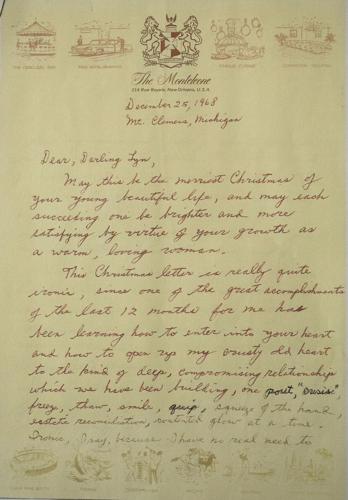 The Monteleone
214 Rue Royale, New Orleans, U.S.A.
December 25, 1968
Mt. Clemens, Michigan
Dear, Darling Lyn,
May this be the merriest Christmas of
your young beautiful life, and may each
succeeding one be brighter and more
satisfying by virtue of your growth as
a warm, loving woman.
This Christmas letter is really quite
ironic, since one of the great accomplishments
of the last 12 months for me has
been learning how to enter into your heart
and how to open up my crusty old heart
to the kind of deep, compromising relationship
which we have been building, one pout, "crisis",
freeze, thaw, smile, quip, squeeze of the hand
estate reconciliation, contented glow at a time.
Ironic, I say, because I have no real need to